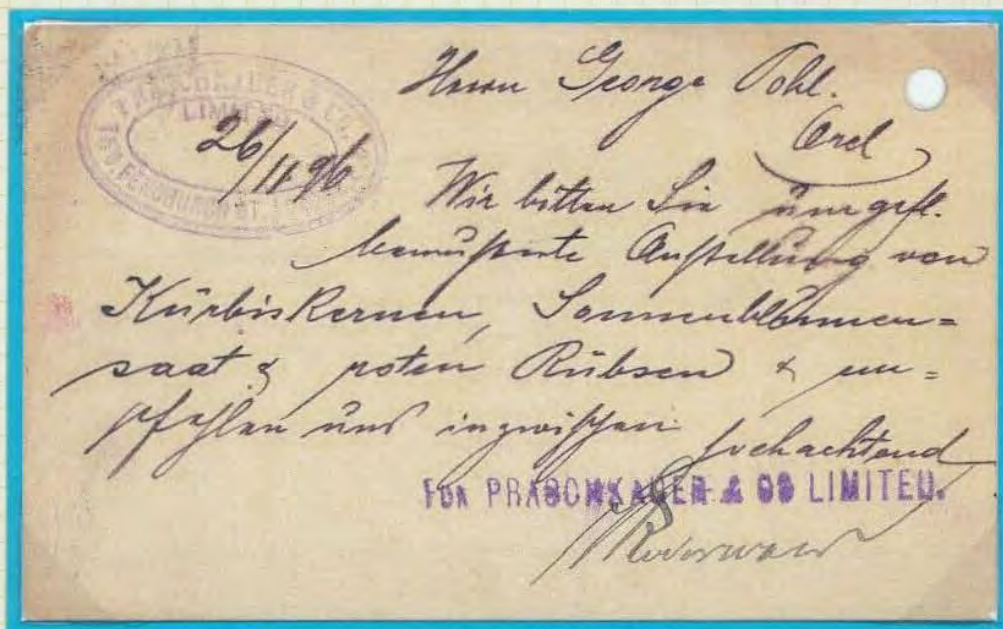 PRASCHKAUER & CO.
LIMITED
FENCHURCH ST.
26/11 96
Herrn George Pohl.
Orel
Wir bitten Sie um gefl.
bemusterte Anstellung von
Kürbiskernen, Sonnenblumen=
saat & roten Rübsen & em=
pfehlen uns inzwischen
hochachtend
FOR PRASCHKAUER & CO LIMITED.